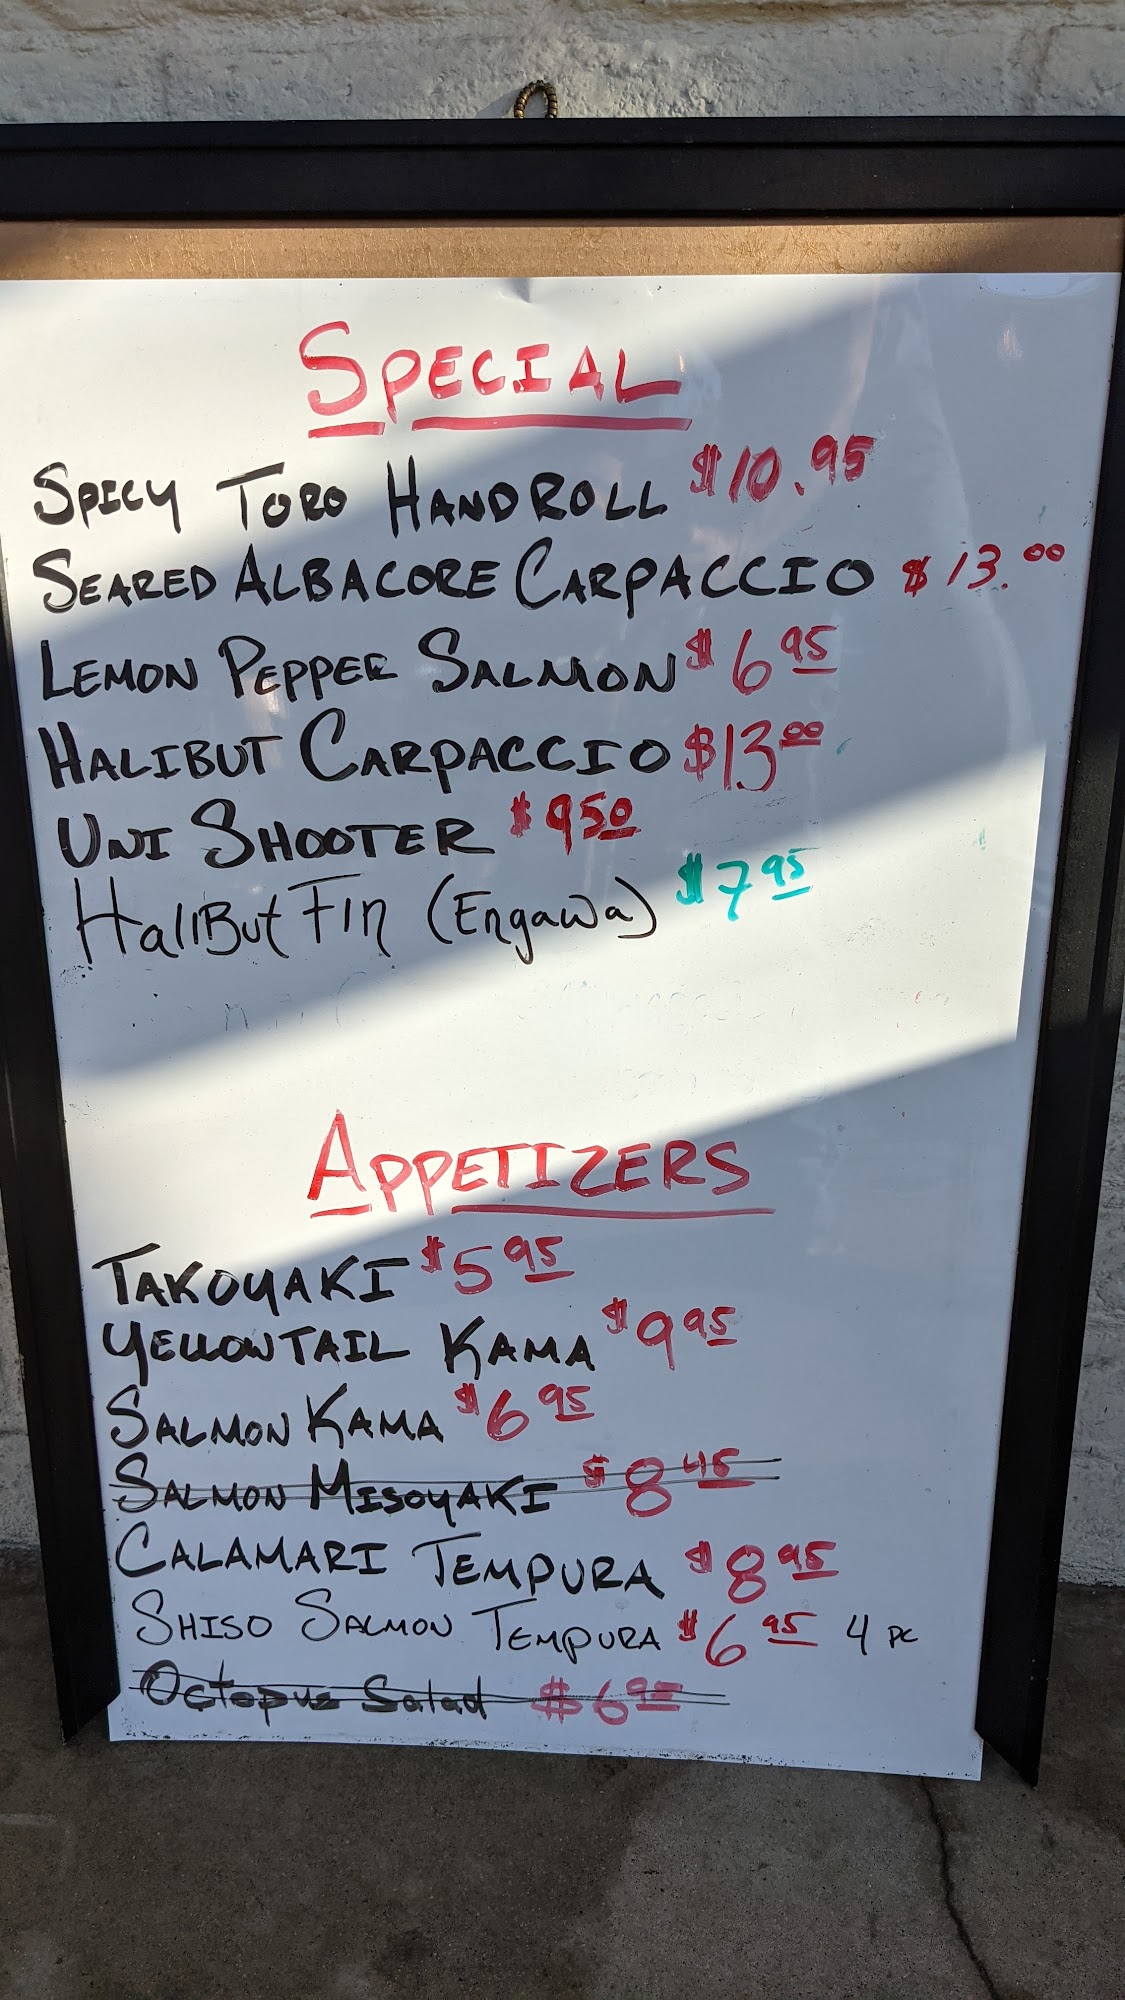 SPECIAL
SPICY TORO HANDROLL $10.95
SEARED ALBACORE CARPACCIO $13.00
LEMON PEPPER SALMON $6 95
HALIBUT CARPACCIO $13 00
UNI SHOOTER $9 50
HaliBut Fin (Engawa) $7 95
APPETIZERS
TAKOYAKI $5 95
YELLOWTAIL KAMA $9 95
SALMON KAMA $6 95
SALMON MISOYAKI $8 45
CALAMARI TEMPURA $8 95
SHISO SALMON TEMPURA $6 95 4 PC
Octopus Salad $6 95